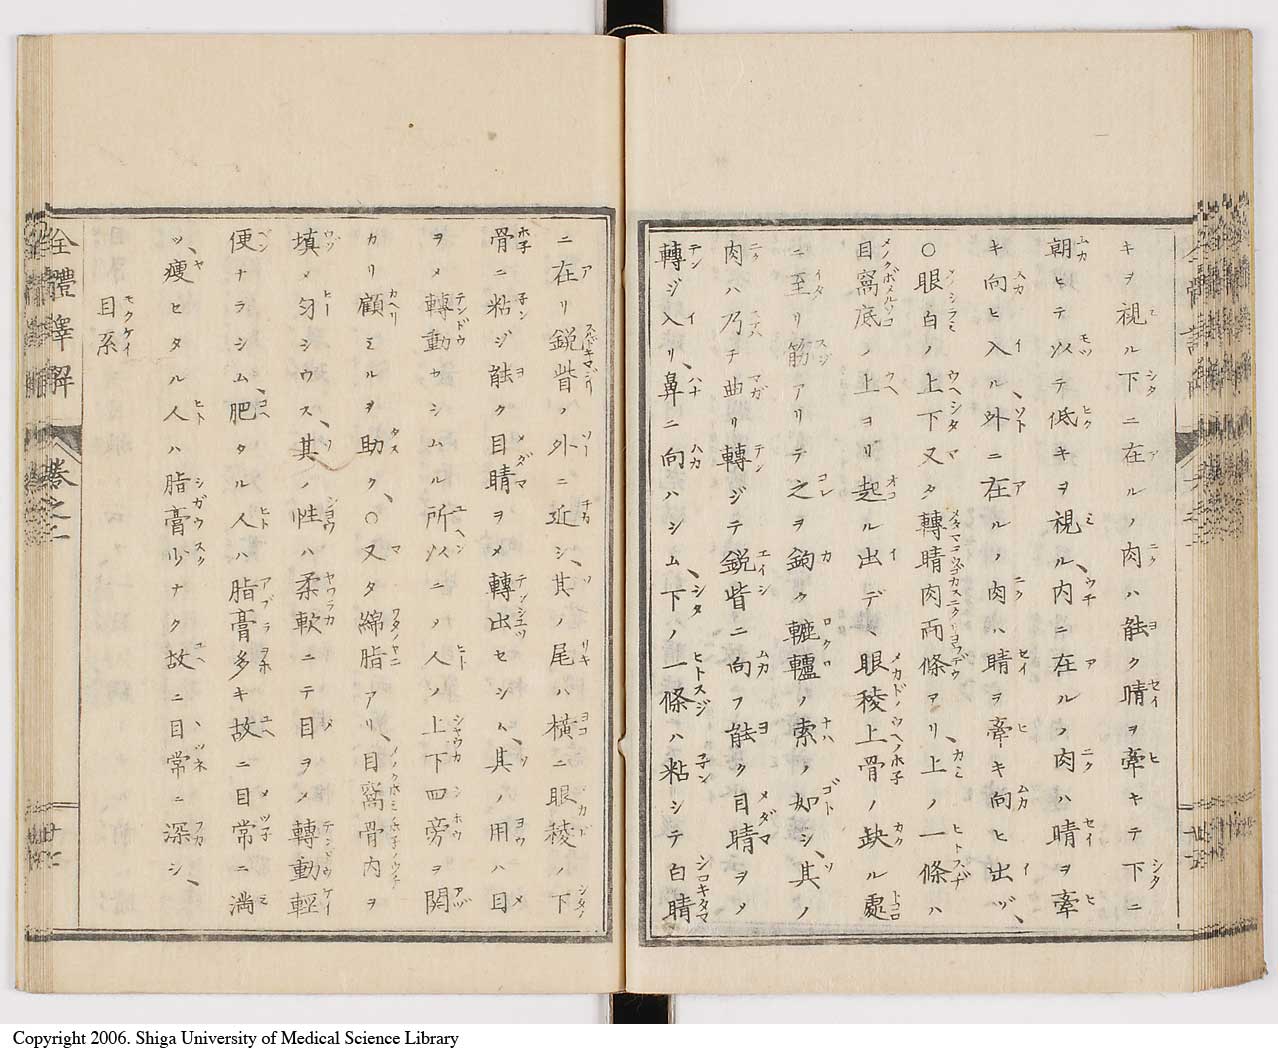 キヲ視ル下ニ在ルノ肉ハ能ク睛ヲ牽キテ下ニ
朝ヒテ以テ低キヲ視ル、内ニ在ルノ肉ハ睛ヲ牽
キ向ヒ入ル、外ニ在ルノ肉ハ睛ヲ牽キ向ヒ出ヅ、
○眼白ノ上下又タ轉睛肉両條アリ、上ノ一條ハ
目窩底ノ上ヨリ起ル出デ、眼稜上骨ノ缺ル處
ニ至リ筋アリテ之ヲ鉤ク轆轤ノ索ノ如シ、其ノ
肉ハ乃チ曲リ轉ジテ鋭眥ニ向フ能ク目睛ヲメ
轉ジ入リ、鼻ニ向ハシム、下ノ一條ハ粘シテ白睛
ニ在リ鋭眥ノ外ニ近シ、其ノ尾ハ横ニ眼稜ノ下
骨ニ粘ジ能ク目睛ヲメ轉出セシム、其ノ用ハ目
ヲメ轉動セシムル所以ニメ人ノ上下四旁ヲ関
カリ顧ミルヲ助ク、○又タ綿脂アリ、目窩骨内ヲ
填メ匀シウス、其ノ性ハ柔軟ニテ目ヲメ轉動輕
便ナラシム、肥タル人ハ脂膏多キ故ニ目常ニ満
ツ、瘦セタル人ハ脂膏少ナク故ニ目常ニ深シ、
目系
全體譯解 巻之二
Copyright 2006. Shiga University of Medical Science Library